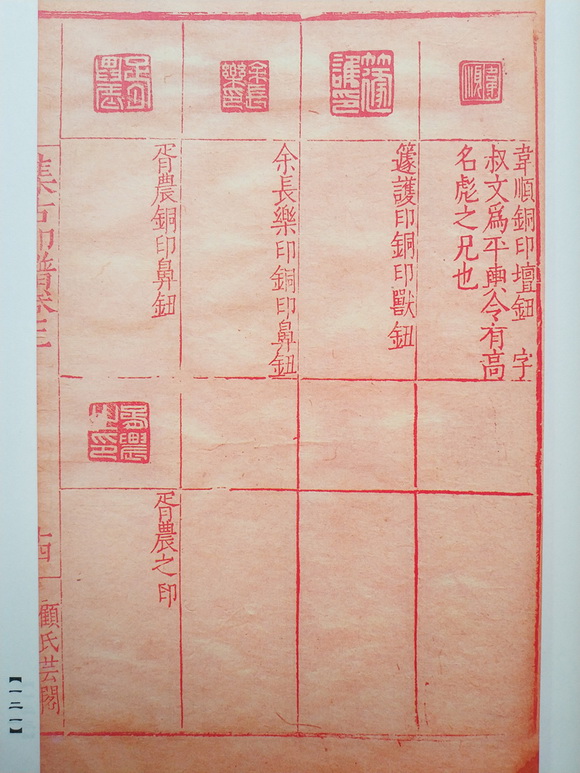 韋順銅印壇鈕　字
叔文爲平輿令有高
名彪之兄也
籧護印銅印獸鈕
余長樂印銅印鼻鈕
胥農銅印鼻鈕
胥農之印
集古印譜卷三
十四
顧氏芸閣
韋順
余長樂印
【一二一】